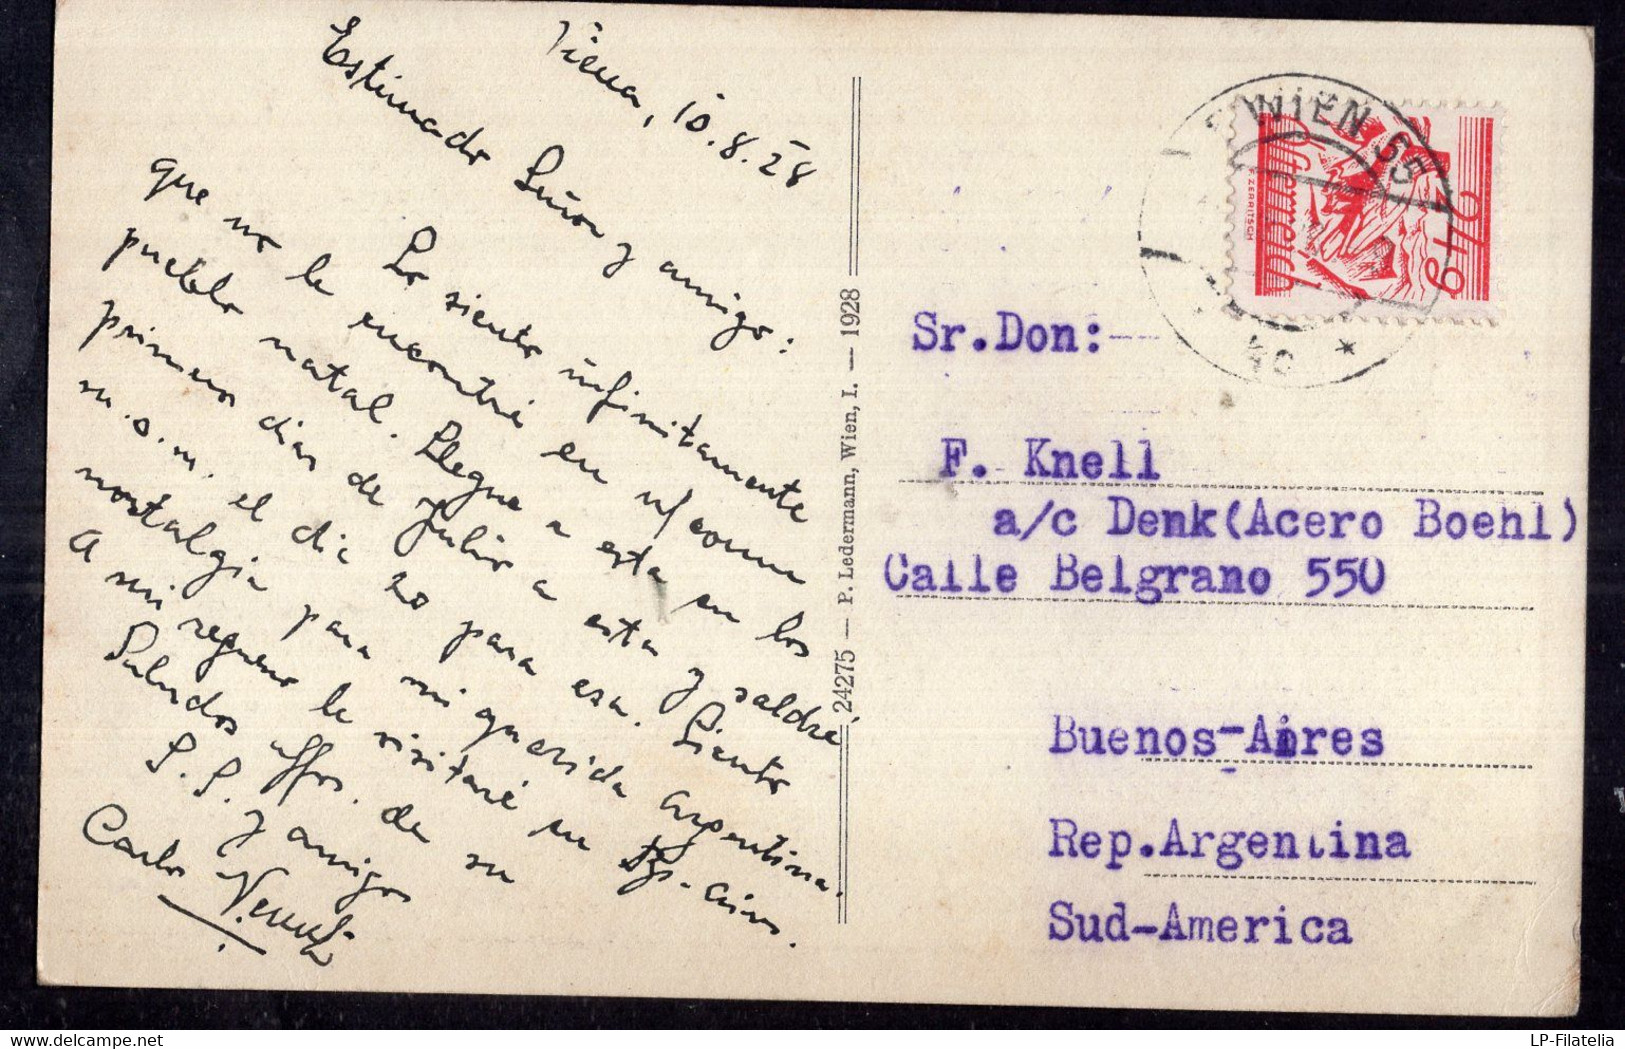 Viena, 10.8.28
Estimado Señor y amigo:
Lo siento infinitamente
que no le encontré en su
pueblo natal. Llegue a esta en los
primeros dias de Julio a esta y saldré
m.o.m. el dia 20 para esa. Siento
nostalgia para mi querida Argentina.
A mi regreso le visitaré en Bs. Aires.
Saludos affos. de su
S.S. y amigo
Carlos
24275 — P. Ledermann, Wien, I. — 1928
WIEN 65
24 g
Österreich
F. ZERRITSCH
Sr.Don:
F. Knell
a/c Denk(Acero Boehl)
Calle Belgrano 550
Buenos-Aires
Rep.Argentina
Sud-America
LP-Filatelia